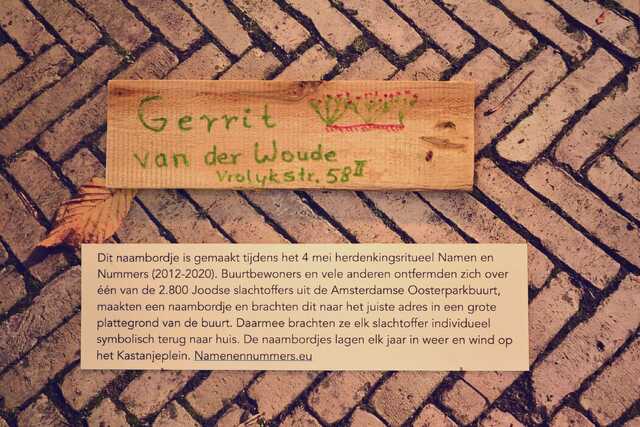 Gerrit
van der Woude
Vrolykstr. 58 II
Dit naambordje is gemaakt tijdens het 4 mei herdenkingsritueel Namen en
Nummers (2012-2020). Buurtbewoners en vele anderen ontfermden zich over
één van de 2.800 Joodse slachtoffers uit de Amsterdamse Oosterparkbuurt,
maakten een naambordje en brachten dit naar het juiste adres in een grote
plattegrond van de buurt. Daarmee brachten ze elk slachtoffer individueel
symbolisch terug naar huis. De naambordjes lagen elk jaar in weer en wind op
het Kastanjeplein. Namenennummers.eu